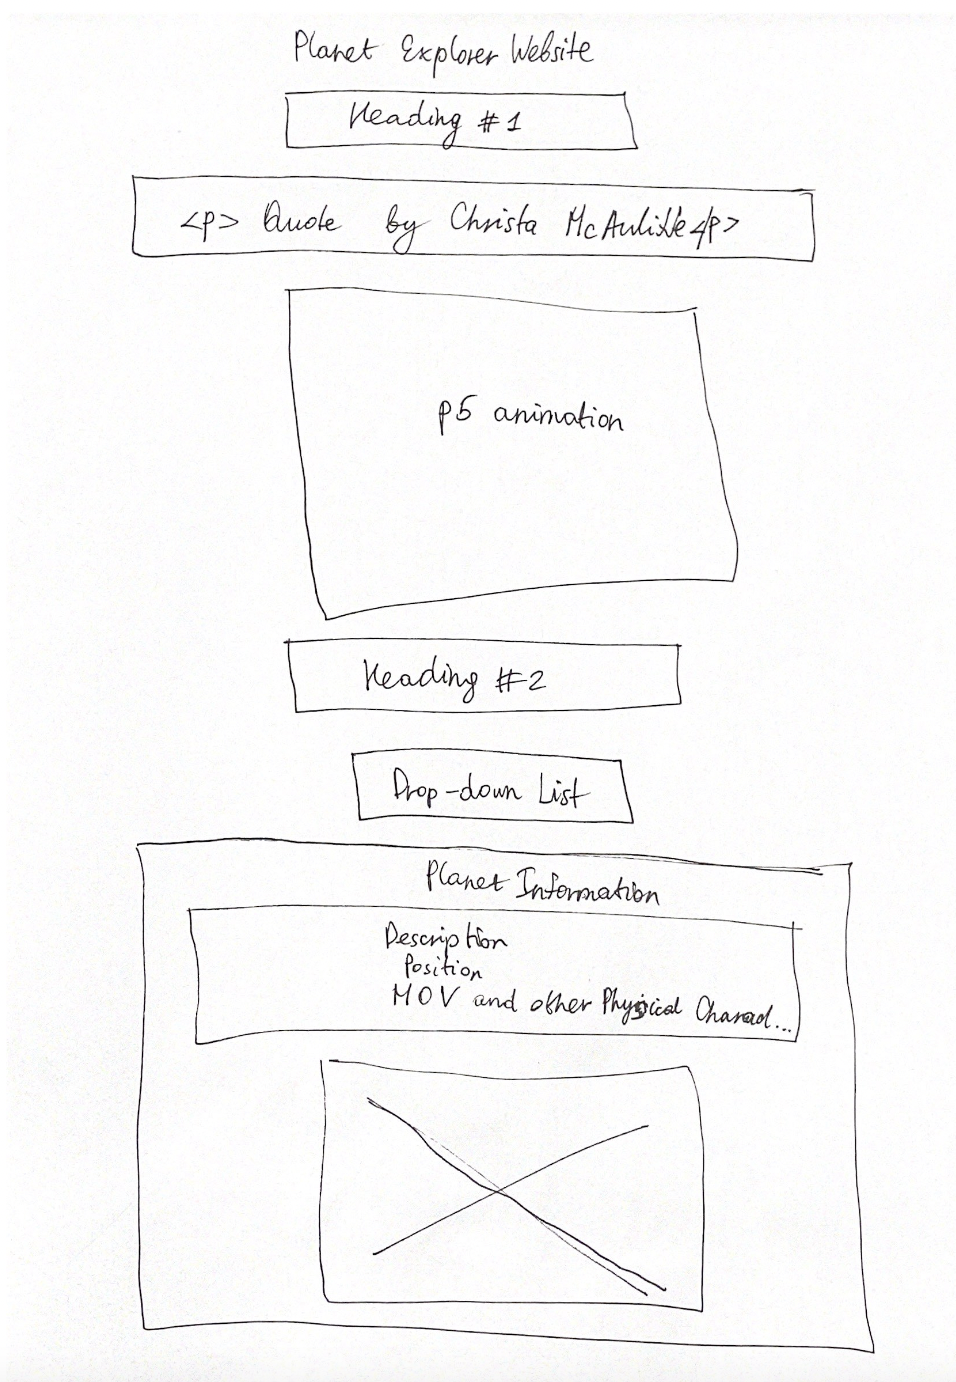 Planet Explorer Website
Heading #1
<p> Quote by Christa McAuliffe </p>
p5 animation
Heading #2
Drop-down List
Planet Information
Description
Position
MOV and other Physical Charact...